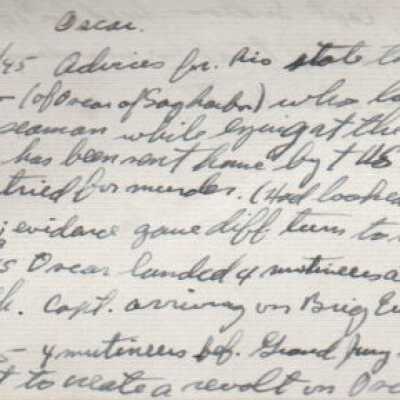 Oscar.
/45 Advices fr. Rio state t
- (of Oscar of Sag harbor) who
seaman while lying at the
has been sent home by + US
tried for murder. (Had looked
evidence gave diff turn to
5 Oscar landed 4 mutineers a
h. Capt. arriving on Brig
- 4 mutineers bef. Grand Jury
t to create a revolt on Os